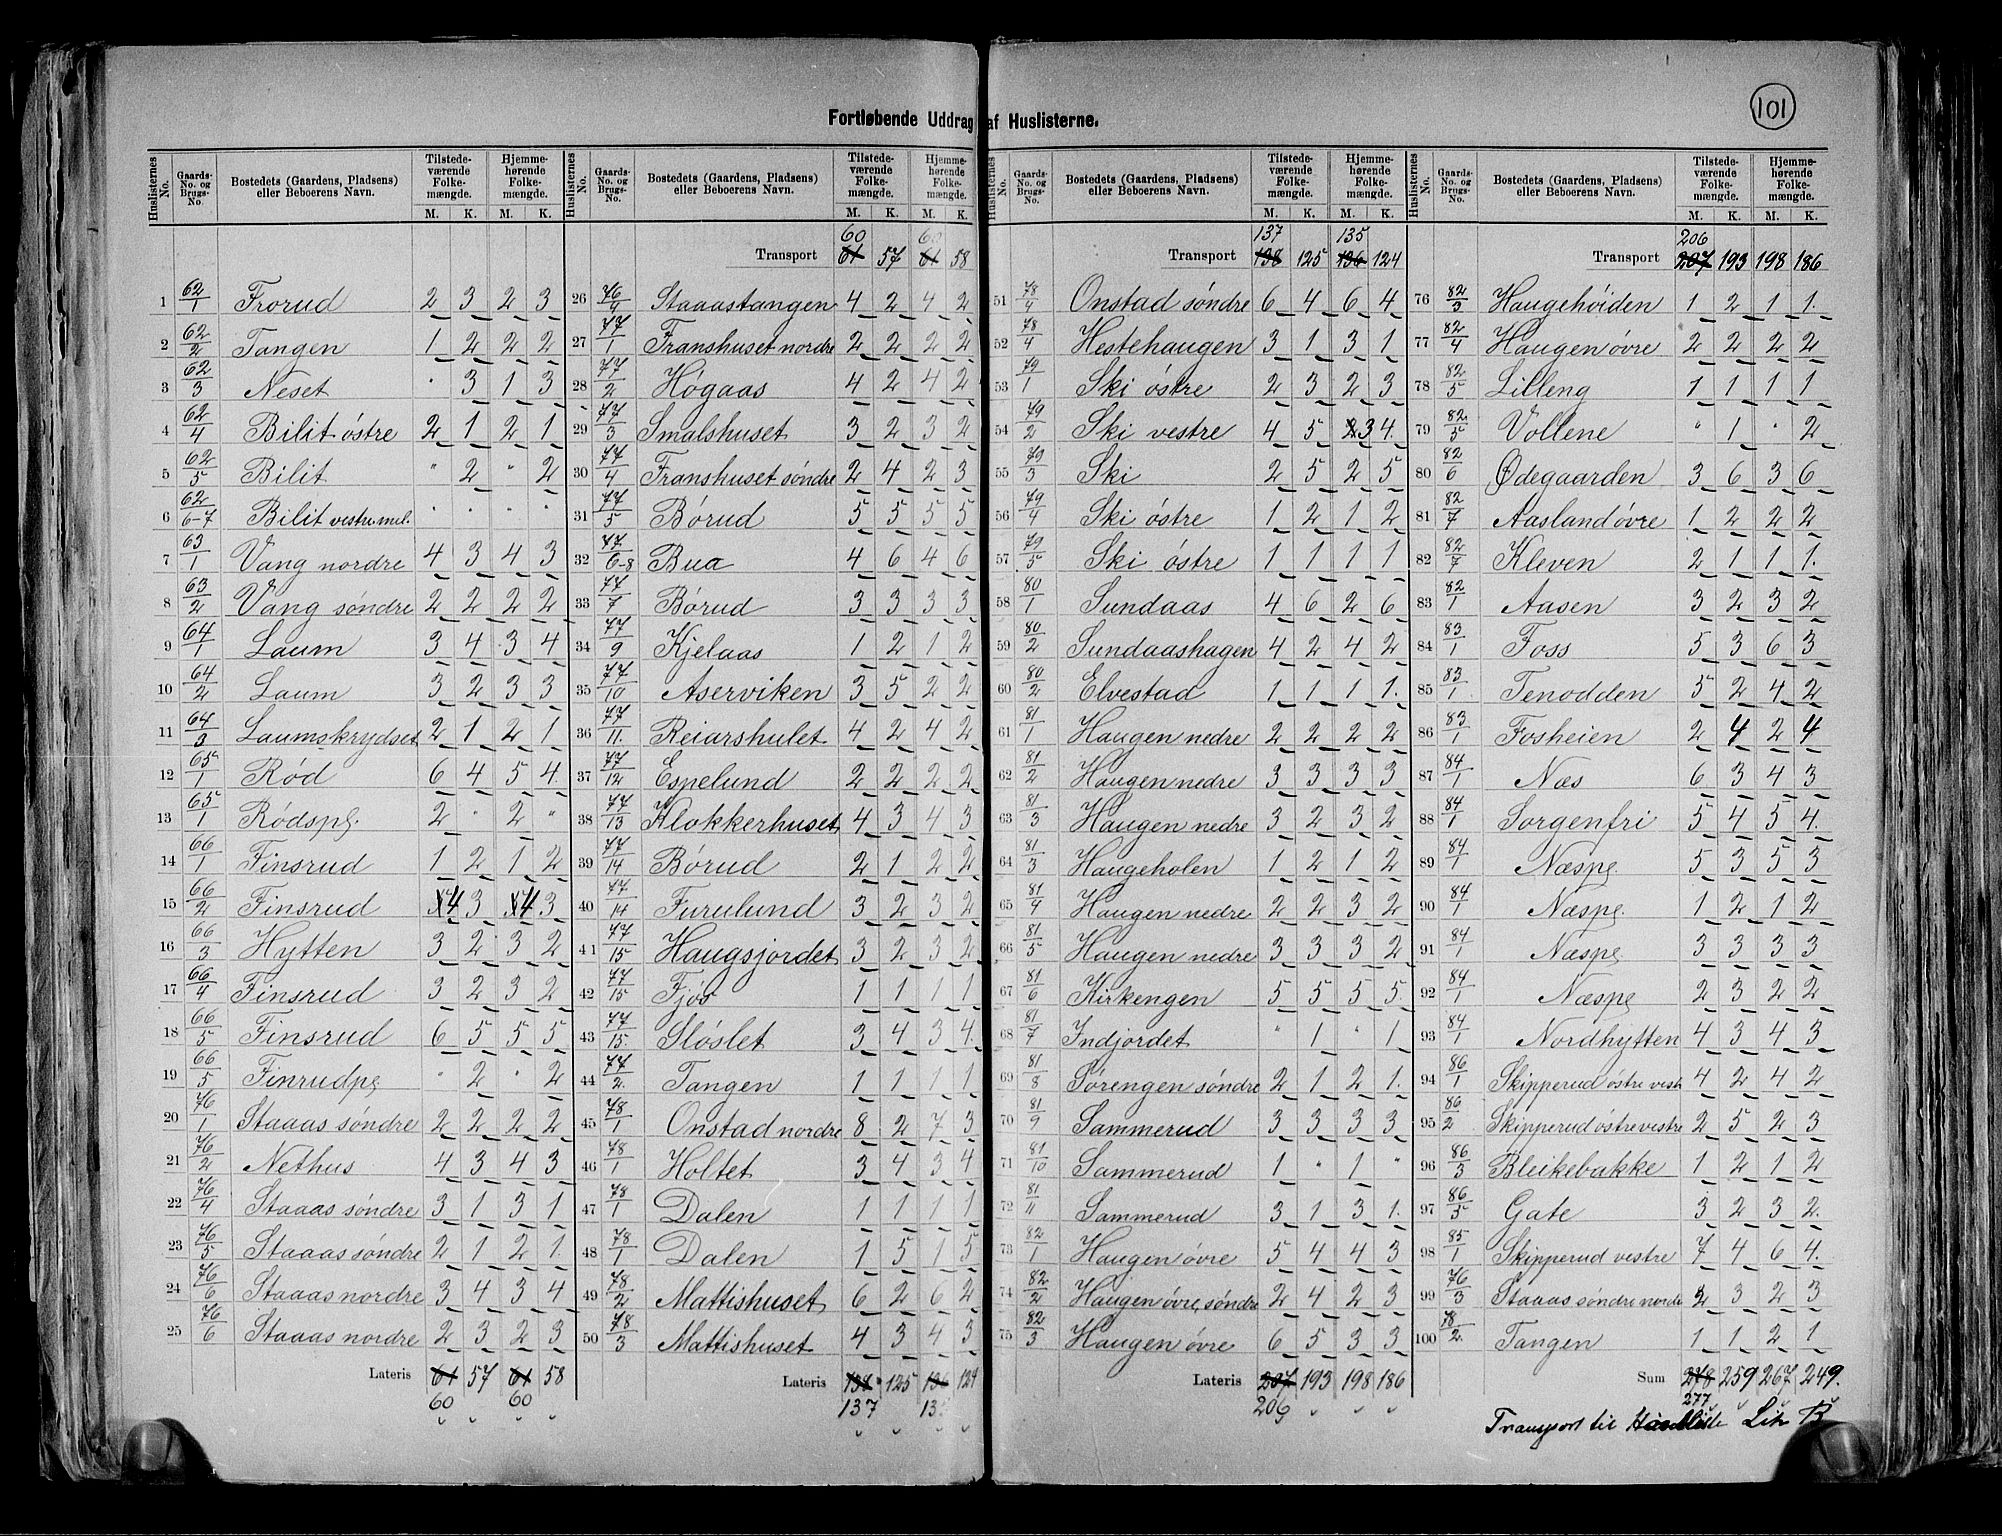 101
Fortløbende Uddrag af Huslisterne.
Huslisternes No. | Gaards-No. og Brugs-No. | Bostedets (Gaardens, Pladsens) eller Beboerens Navn. | Tilstedeværende Folkemængde. M. K. | Hjemmehørende Folkemængde. M. K.
1 62/1 Frorud 2 3 2 3
2 62/2 Tangen 1 2 2 2
3 62/3 Neset " 3 1 3
4 62/4 Bilit østre 2 1 2 1
5 62/5 Bilit " 2 " 2
6 62/6-7 Bilit vestre mel. " " " "
7 63/1 Vang nordre 4 3 4 3
8 63/2 Vang søndre 2 2 2 2
9 64/1 Laum 3 4 3 4
10 64/2 Laum 3 2 3 3
11 64/3 Laumskrydset 2 1 2 1
12 65/1 Rød 6 4 5 4.
13 65/1 Rødspl. 2 " 2 "
14 66/1 Finsrud 1 2 1 2
15 66/2 Finsrud 4 3 4 3
16 66/3 Hytten 3 2 3 2
17 66/4 Finsrud 3 2 3 2
18 66/5 Finsrud 6 5 5 5
19 66/5 Finrudpl " 2 " 2
20 76/1 Staaas søndre 2 2 2 2
21 76/2 Nethus 4 3 4 3
22 76/4 Staaas søndre 3 1 3 1
23 76/5 Staaas søndre 2 1 2 1.
24 76/6 Staaas nordre 3 4 3 4
25 76/6 Staaas nordre 2 3 2 3
Lateris 61 57 61 58
60 60
Huslisternes No. | Gaards-No. og Brugs-No. | Bostedets (Gaardens, Pladsens) eller Beboerens Navn. | Tilstedeværende Folkemængde. M. K. | Hjemmehørende Folkemængde. M. K.
60 60
Transport 61 57 61 58
26 76/4 Staaastangen 4 2 4 2
27 77/1 Franshuset nordre 2 2 2 2
28 77/2 Høgaas 4 2 4 2
29 77/3 Smalshuset 3 2 3 2
30 77/4 Franshuset søndre 2 4 2 3
31 77/5 Børud 5 5 5 5
32 77/6-8 Bua 4 6 4 6
33 77/7 Børud 3 3 3 3
34 77/9 Kjelaas 1 2 1 2
35 77/10 Aserviken 3 5 2 2
36 77/11. Reiarshulet 4 2 4 2
37 77/12 Espelund 2 2 2 2
38 77/13 Klokkerhuset 4 3 4 3
39 77/14 Børud 2 1 2 2
40 77/14 Furulund 3 2 3 2
41 77/15 Haugsjordet 3 2 3 2
42 77/15 Fjøs 1 1 1 1
43 77/15. Sløslet 3 4 3 4.
44 77/2. Tangen 1 1 1 1
45 78/1 Onstad nordre 8 2 7 3
46 78/1 Holtet 3 4 3 4
47 78/1 Dalen 1 1 1 1
48 78/1 Dalen 1 5 1 5
49 78/2 Mattishuset 6 2 6 2
50 78/3 Mattishuset 4 3 4 3
Lateris 138 125 136 124
137
Huslisternes No. | Gaards-No. og Brugs-No. | Bostedets (Gaardens, Pladsens) eller Beboerens Navn. | Tilstedeværende Folkemængde. M. K. | Hjemmehørende Folkemængde. M. K.
137 135
Transport 138 125 136 124
51 78/4 Onstad søndre 6 4 6 4
52 78/4 Hestehaugen 3 1 3 1
53 79/1 Ski østre 2 3 2 3
54 79/2 Ski vestre 4 5 3 4.
55 79/3 Ski 2 5 2 5
56 79/4 Ski østre 1 2 1 2
57 79/5 Ski østre 1 1 1 1
58 80/1 Sundaas 4 6 2 6
59 80/2 Sundaashagen 4 2 4 2
60 80/2 Elvestad 1 1 1 1.
61 81/1 Haugen nedre 2 2 2 2
62 81/2 Haugen nedre 3 3 3 3
63 81/3 Haugen nedre 3 2 3 2
64 81/3 Haugeholen 1 2 1 2
65 81/4 Haugen nedre 2 2 3 2
66 81/5 Haugen nedre 3 3 3 2
67 81/6 Kirkengen 5 5 5 5.
68 81/7 Indjordet " 1 " 1
69 81/8 Sørengen søndre 2 1 2 1.
70 81/9 Sammerud 3 3 3 3
71 81/10 Sammerud 1 " 1 "
72 81/11 Sammerud 3 1 3 1.
73 82/1 Haugen øvre 5 4 4 3
74 82/2 Haugen øvre, søndre 2 4 2 3
75 82/3 Haugen øvre 6 5 3 3
Lateris 207 193 198 186
206
Huslisternes No. | Gaards-No. og Brugs-No. | Bostedets (Gaardens, Pladsens) eller Beboerens Navn. | Tilstedeværende Folkemængde. M. K. | Hjemmehørende Folkemængde. M. K.
206
Transport 207 193 198 186
76 82/3 Haugehøiden 1 2 1 1.
77 82/4 Haugen øvre 2 2 2 2
78 82/5 Lilleng 1 1 1 1
79 82/5 Vollene " 1 " 2
80 82/6 Ødegaarden 3 6 3 6
81 82/7 Aasland øvre 1 2 2 2
82 82/7 Kleven 2 1 1 1.
83 82/1 Aasen 3 2 3 2
84 83/1 Foss 5 3 6 3
85 83/1. Tenodden 5 2 4 2
86 83/1 Fosheien 2 4 2 4
87 84/1 Næs 6 3 4 3
88 84/1 Sorgenfri 5 4 5 4.
89 84/1 Næspl. 5 3 5 3
90 84/1 Næspl. 1 2 1 2
91 84/1 Næspl 3 3 3 3
92 84/1 Næspl 2 3 2 2
93 84/1 Nordhytten 4 3 4 3
94 86/1 Skipperud østre vest 4 2 4 2
95 86/2 Skipperud østre vestre 2 5 2 3
96 86/3 Bleikebakke 1 2 1 2
97 86/5 Gate 3 2 3 2.
98 85/1 Skipperud vestre 7 4 6 4.
99 76/3 Staaas søndre nordre 2 3 2 3
100 78/2. Tangen 1 1 2 1
Sum 278 259 267 249.
277
Transport til Litr B